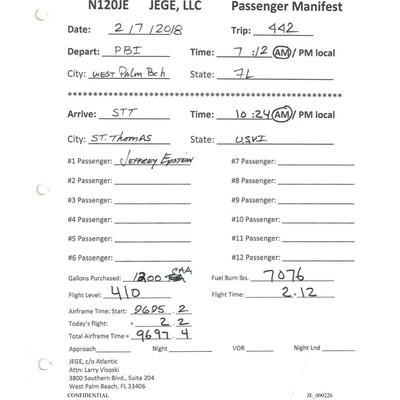 N120JE JEGE, LLC Passenger Manifest
Date: 2/7/2018 Trip: 442
Depart: PBI Time: 7:12 AM / PM local
City: West Palm Bch State: FL
Arrive: STT Time: 10:24 AM / PM local
City: St. Thomas State: USVI
#1 Passenger: Jeffrey Epstein #7 Passenger:
#2 Passenger: #8 Passenger:
#3 Passenger: #9 Passenger:
#4 Passenger: #10 Passenger:
#5 Passenger: #11 Passenger:
#6 Passenger: #12 Passenger:
Gallons Purchased: 1200 Fuel Burn lbs. 7076
Flight Level: 410 Flight Time: 2.12
Airframe Time: Start: 9695.2
Today's flight: = 2.2
Total Airframe Time = 9697.4
Approach Night VOR Night Lnd
JEGE, c/o Atlantic
Attn: Larry Visoski
3800 Southern Blvd., Suite 204
West Palm Beach, FL 33406
CONFIDENTIAL JE_000226